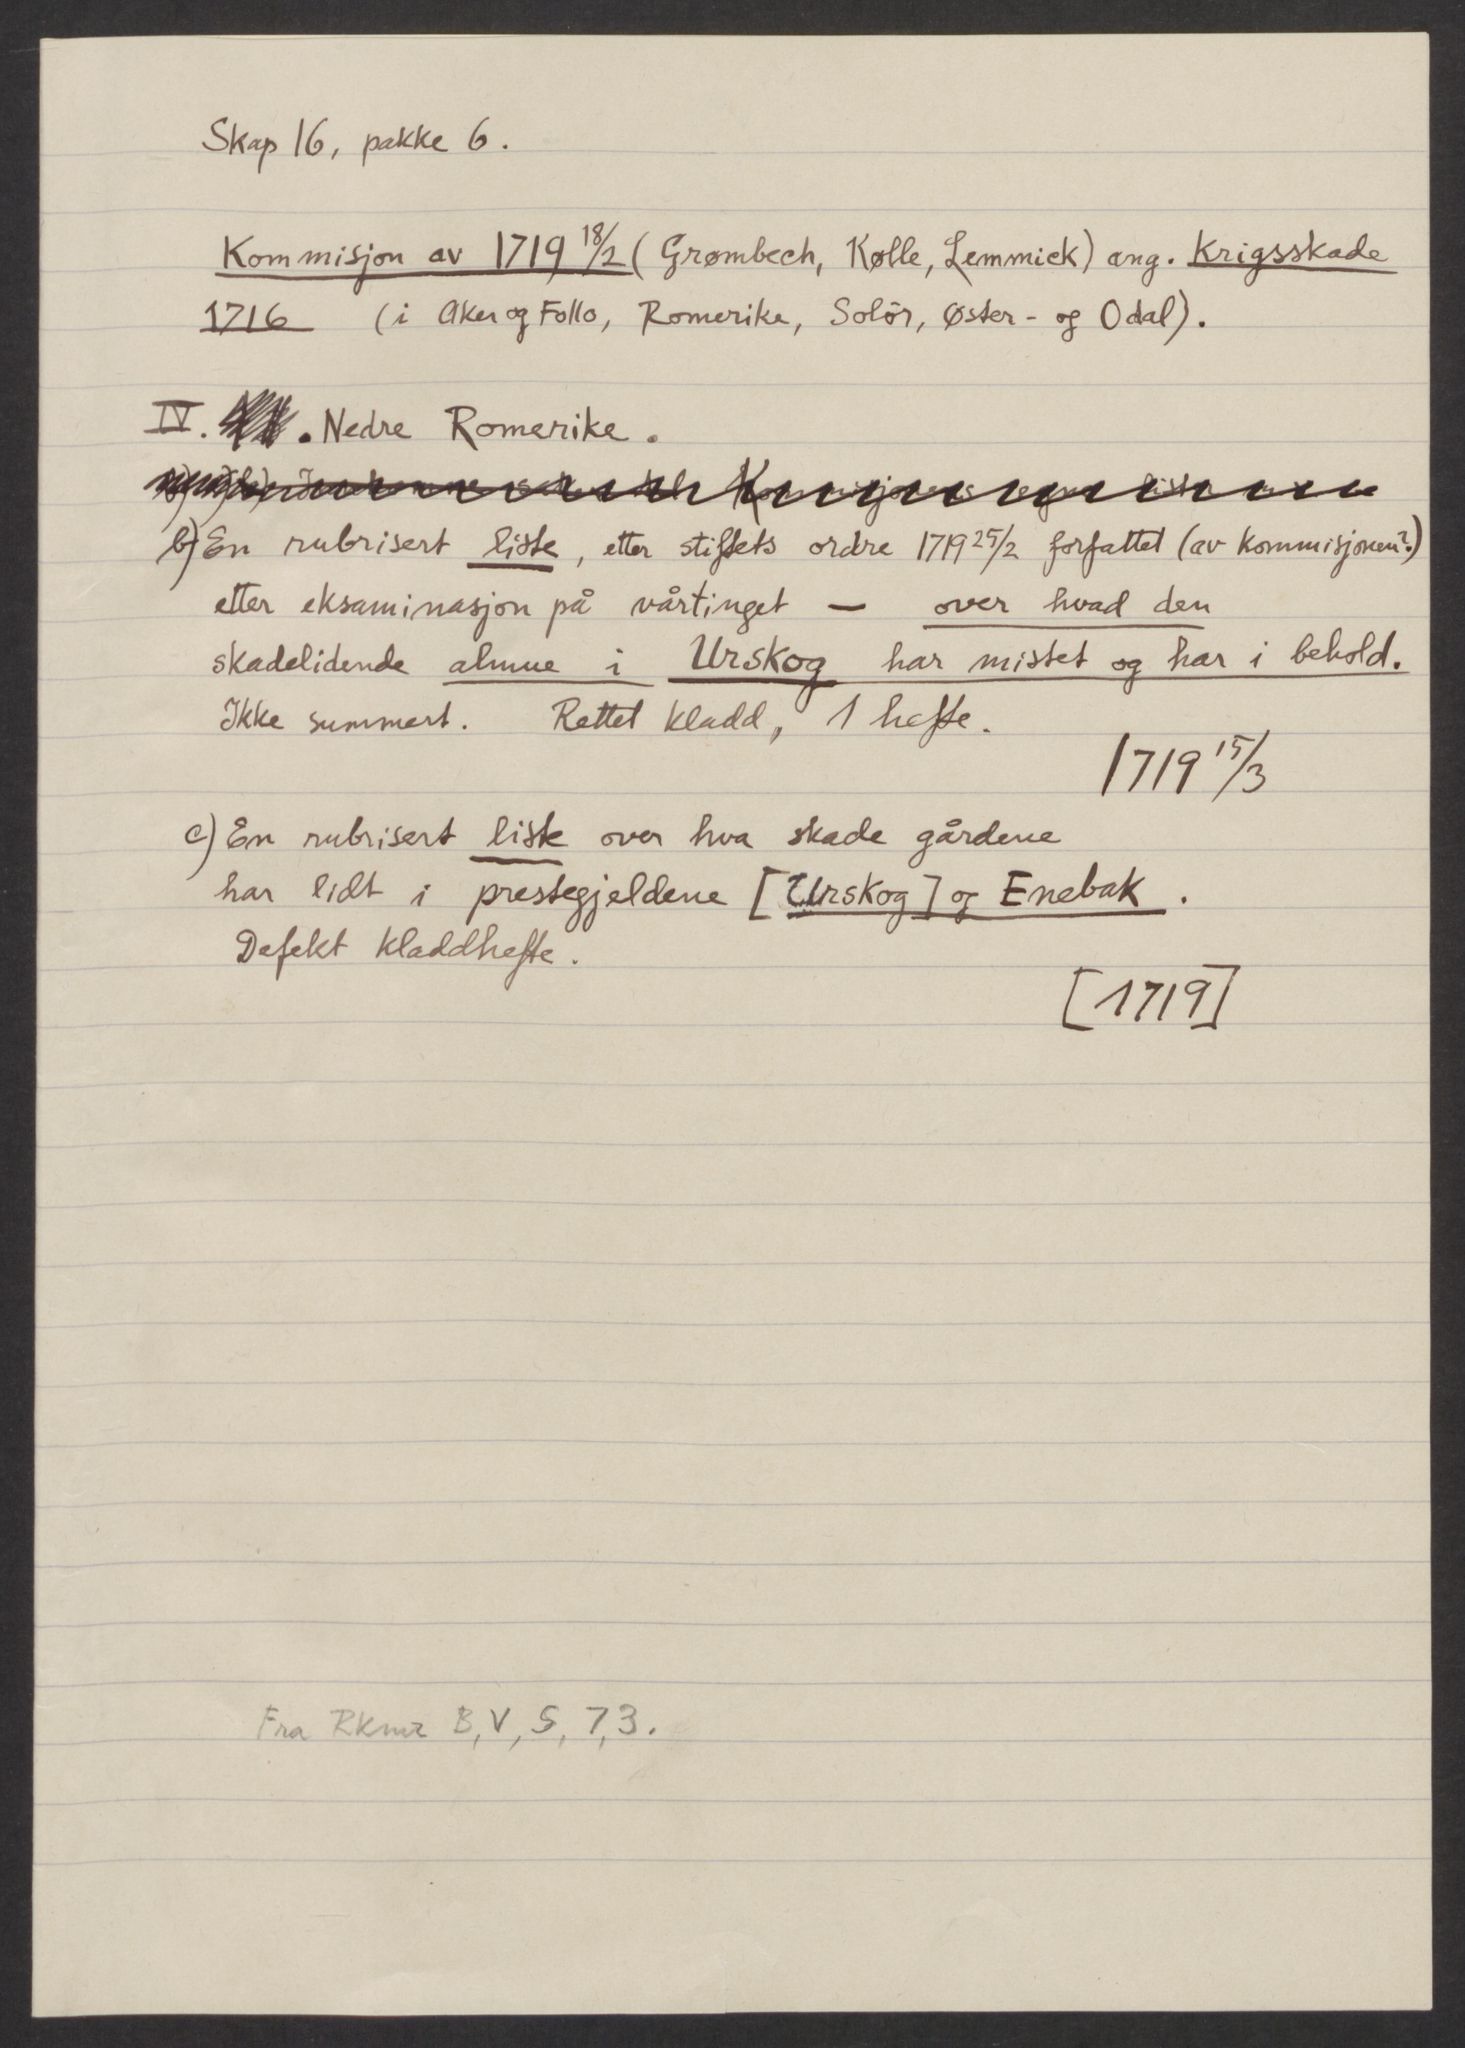 Skap 16, pakke 6.
Kommisjon av 1719 18/2 (Grømbech, Kølle, Lemmick) ang. Krigsskade
1716 (i Aker og Follo, Romerike, Solør, Øster- og Odal).
IV. . Nedre Romerike.
b) En rubrisert liste, etter stiftets ordre 1719 25/2 forfattet (av kommisjonen?)
etter eksaminasjon på vårtinget — over hvad den
skadelidende almue i Urskog har mistet og har i behold.
Ikke summert. Rettet kladd, 1 hefte.
1719 15/3
c) En rubrisert liste over hva skade gårdene
har lidt i prestegjeldene [Urskog] og Enebak.
Defekt kladdhefte.
[1719]
Fra Rkmr B, V, S, 7, 3.